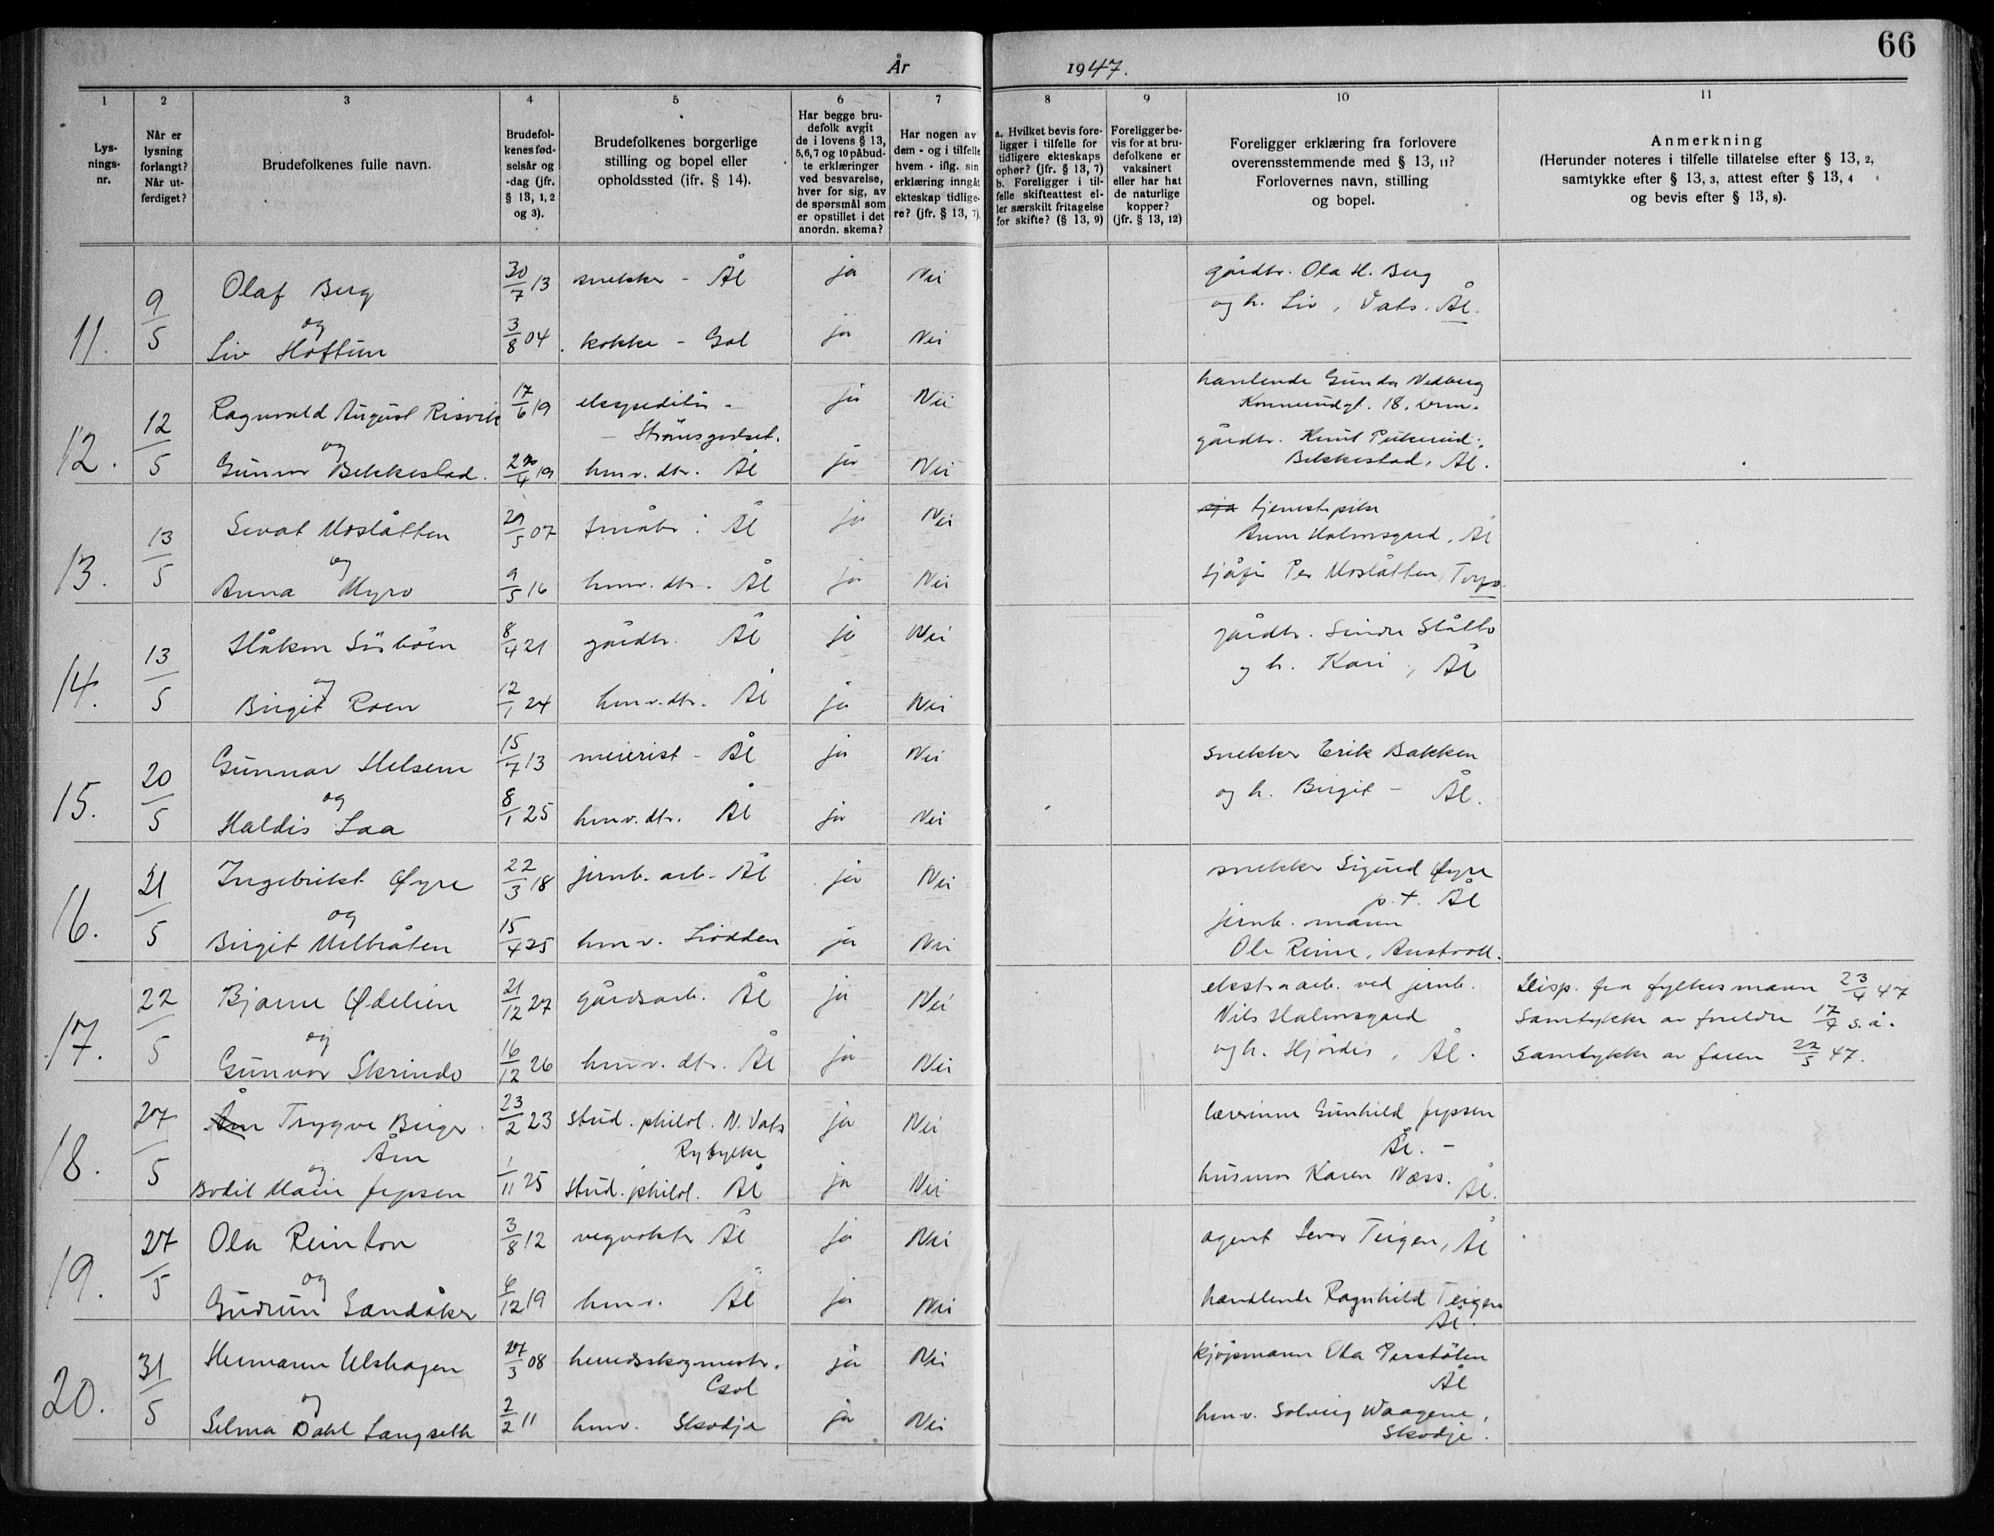 66
År 1947.
1 2 3 4 5 6 7 8 9 10 11
Lys-
nings-
nr.
Når er
lysning
forlangt?
Når ut-
ferdiget?
Brudefolkenes fulle navn.
Brudefol-
kenes fød-
selsår og
-dag (jfr.
§ 13, 1, 2
og 3).
Brudefolkenes borgerlige
stilling og bopel eller
opholdssted (jfr. § 14).
Har begge bru-
defolk avgit
de i lovens § 13,
5,6,7 og 10 påbud-
te erklæringer
ved besvarelse,
hver for sig, av
de spørsmål som
er opstillet i det
anordn. skema?
Har nogen av
dem - og i tilfelle
hvem - iflg. sin
erklæring inngått
ekteskap tidlige-
re? (jfr. § 13, 7).
a. Hvilket bevis fore-
ligger i tilfelle for
tidligere ekteskaps
ophør? (jfr. § 13, 7)
b. Foreligger i til-
felle skifteattest el-
ler særskilt fritagelse
for skifte? (§ 13, 9)
Foreligger be-
vis for at bru-
defolkene er
vaksinert
eller har hat
de naturlige
kopper?
(jfr. § 13, 12)
Foreligger erklæring fra forlovere
overensstemmende med § 13, 11?
Forlovernes navn, stilling
og bopel.
Anmerkning
(Herunder noteres i tilfelle tillatelse efter § 13, 2,
samtykke efter § 13, 3, attest efter § 13, 4
og bevis efter § 13, 8).
11. 9/5 Olaf Berg 30/7 13 snekker - Ål ja Nei gårdbr. Ola H. Berg
og og h. Liv, Vats. Ål.
Liv Hoftun 3/8 04 kokke - Gol ja Nei
12. 12/5 Ragnvald August Risvik 17/6 19 ekspeditør - ja Nei handlende Gunda Nedberg
Strømsgodset. 18. Drm.
og gårdbr. Knut
Gunvor Bekkestad. /4 19 hmv. dtr. Ål ja Nei Bekkestad, Ål.
13. 13/5 Sevat Moslåtten 29/5 07 småbr. Ål ja Nei tjenestepike
Anne Holmsgard, Ål
og
Anna Myro 9/5 16 hmv. dtr. Ål ja Nei sjåfør Per Moslåtten, Torpo.
14. 13/5 Håkon Sisbøen 8/4 21 gårdbr. Ål ja Nei gårdbr. Sindre Slåtto
og og h. Kari, Ål
Birgit Roen 12/1 24 hmv. dtr. Ål ja Nei
15. 20/5 Gunnar Helsem 15/7 13 meierist - Ål ja Nei snekker Erik Bakken
og og h. Birgit - Ål.
Haldis Laa 8/1 25 hmv. dtr. Ål ja Nei
16. 21/5 Ingebrikt Øyre 22/3 18 jernb. arb. Ål ja Nei snekker Sigurd Øyre
p.t. Ål
og jernb. mann
Birgit Melbråten 15/4 25 hmv. Liodden ja Nei Ole Rime,
17. 22/5 Bjarne Ødelien 21/12 27 gårdsarb. Ål ja Nei ekstraarb. ved jernb. Disp. fra fylkesmann 23/4 47
Nils Holmsgard Samtykke av foreldre 17/4 s.å.
og og h. Hjørdis, Ål. Samtykke av faren 22/5 47.
Gunvor Skrindo 16/12 26 hmv. dtr. Ål ja Nei
18. 27/5 Åm Trygve Birger 23/2 23 stud. philol. N. Vats ja Nei lærerinne Gunhild Jepsen
Åm Rygylke Ål. -
og
Bodil Marie Jepsen 1/11 25 stud. philol. Ål ja Nei husmor Karen Næss. Ål.
19. 27/5 Ola Reinton 3/8 12 vegvokter Ål ja Nei agent Sevar Teigen, Ål
og
Gudrun Sandåker 6/12 19 hmv. Ål ja Nei handlende Ragnhild Teigen
Ål.
20. 31/5 Hermann Ulshagen 27/3 08 herredsskogmestr. ja Nei kjøpmann Ola Perstølen
Gol Ål
og
Selma Dahl Langseth 2/2 11 hmv. Skodje ja Nei hmv. Solveig Waagene,
Skodje.